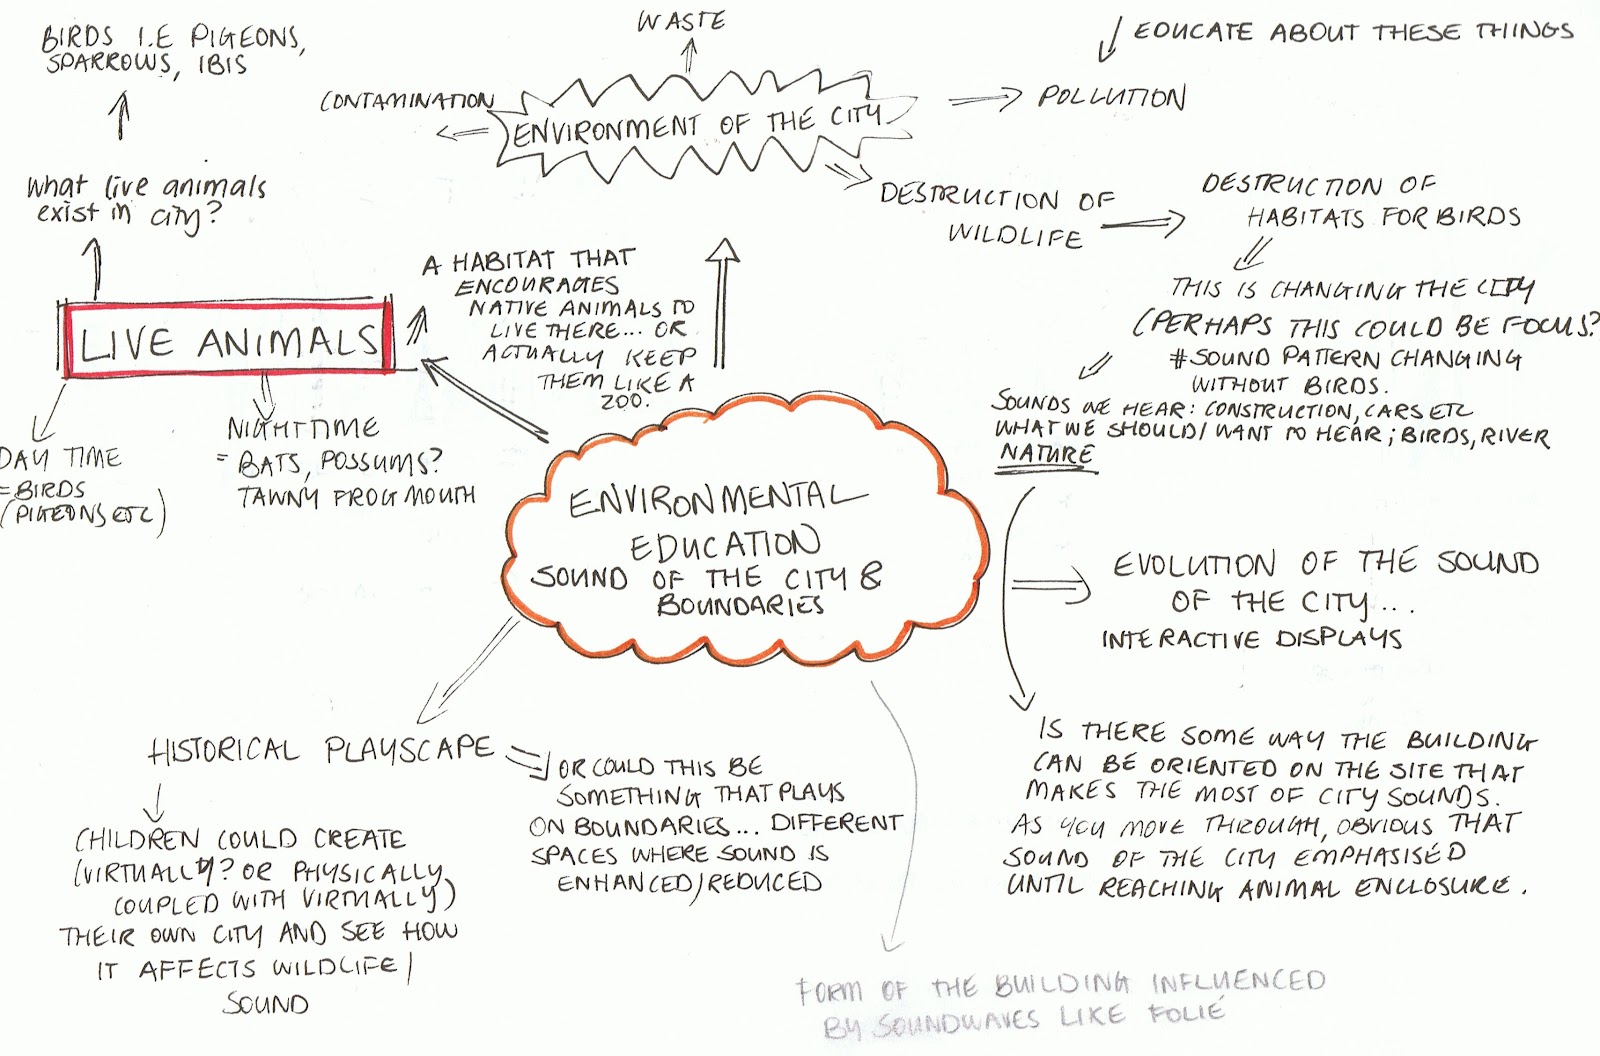 BIRDS I.E PIGEONS,
SPARROWS, IBIS
What live animals
exist in city?
LIVE ANIMALS
DAY TIME
= BIRDS
(PIGEONS ETC)
NIGHT TIME
= BATS, POSSUMS?
TAWNY FROG MOUTH
A HABITAT THAT
ENCOURAGES
NATIVE ANIMALS TO
LIVE THERE... OR
ACTUALLY KEEP
THEM LIKE A
ZOO.
WASTE
CONTAMINATION
ENVIRONMENT OF THE CITY
EDUCATE ABOUT THESE THINGS
POLLUTION
DESTRUCTION OF
WILDLIFE
DESTRUCTION OF
HABITATS FOR BIRDS
THIS IS CHANGING THE CITY
(PERHAPS THIS COULD BE FOCUS?
#SOUND PATTERN CHANGING
WITHOUT BIRDS.
SOUNDS WE HEAR: CONSTRUCTION, CARS ETC
WHAT WE SHOULD/WANT TO HEAR; BIRDS, RIVER
NATURE
ENVIRONMENTAL
EDUCATION
SOUND OF THE CITY &
BOUNDARIES
EVOLUTION OF THE SOUND
OF THE CITY...
INTERACTIVE DISPLAYS
IS THERE SOME WAY THE BUILDING
CAN BE ORIENTED ON THE SITE THAT
MAKES THE MOST OF CITY SOUNDS.
AS YOU MOVE THROUGH, OBVIOUS THAT
SOUND OF THE CITY EMPHASISED
UNTIL REACHING ANIMAL ENCLOSURE.
HISTORICAL PLAYSCAPE
CHILDREN COULD CREATE
(VIRTUALLY? OR PHYSICALLY
COUPLED WITH VIRTUALLY)
THEIR OWN CITY AND SEE HOW
IT AFFECTS WILDLIFE/
SOUND
OR COULD THIS BE
SOMETHING THAT PLAYS
ON BOUNDARIES... DIFFERENT
SPACES WHERE SOUND IS
ENHANCED/REDUCED
FORM OF THE BUILDING INFLUENCED
BY SOUNDWAVES LIKE FOLIÉ